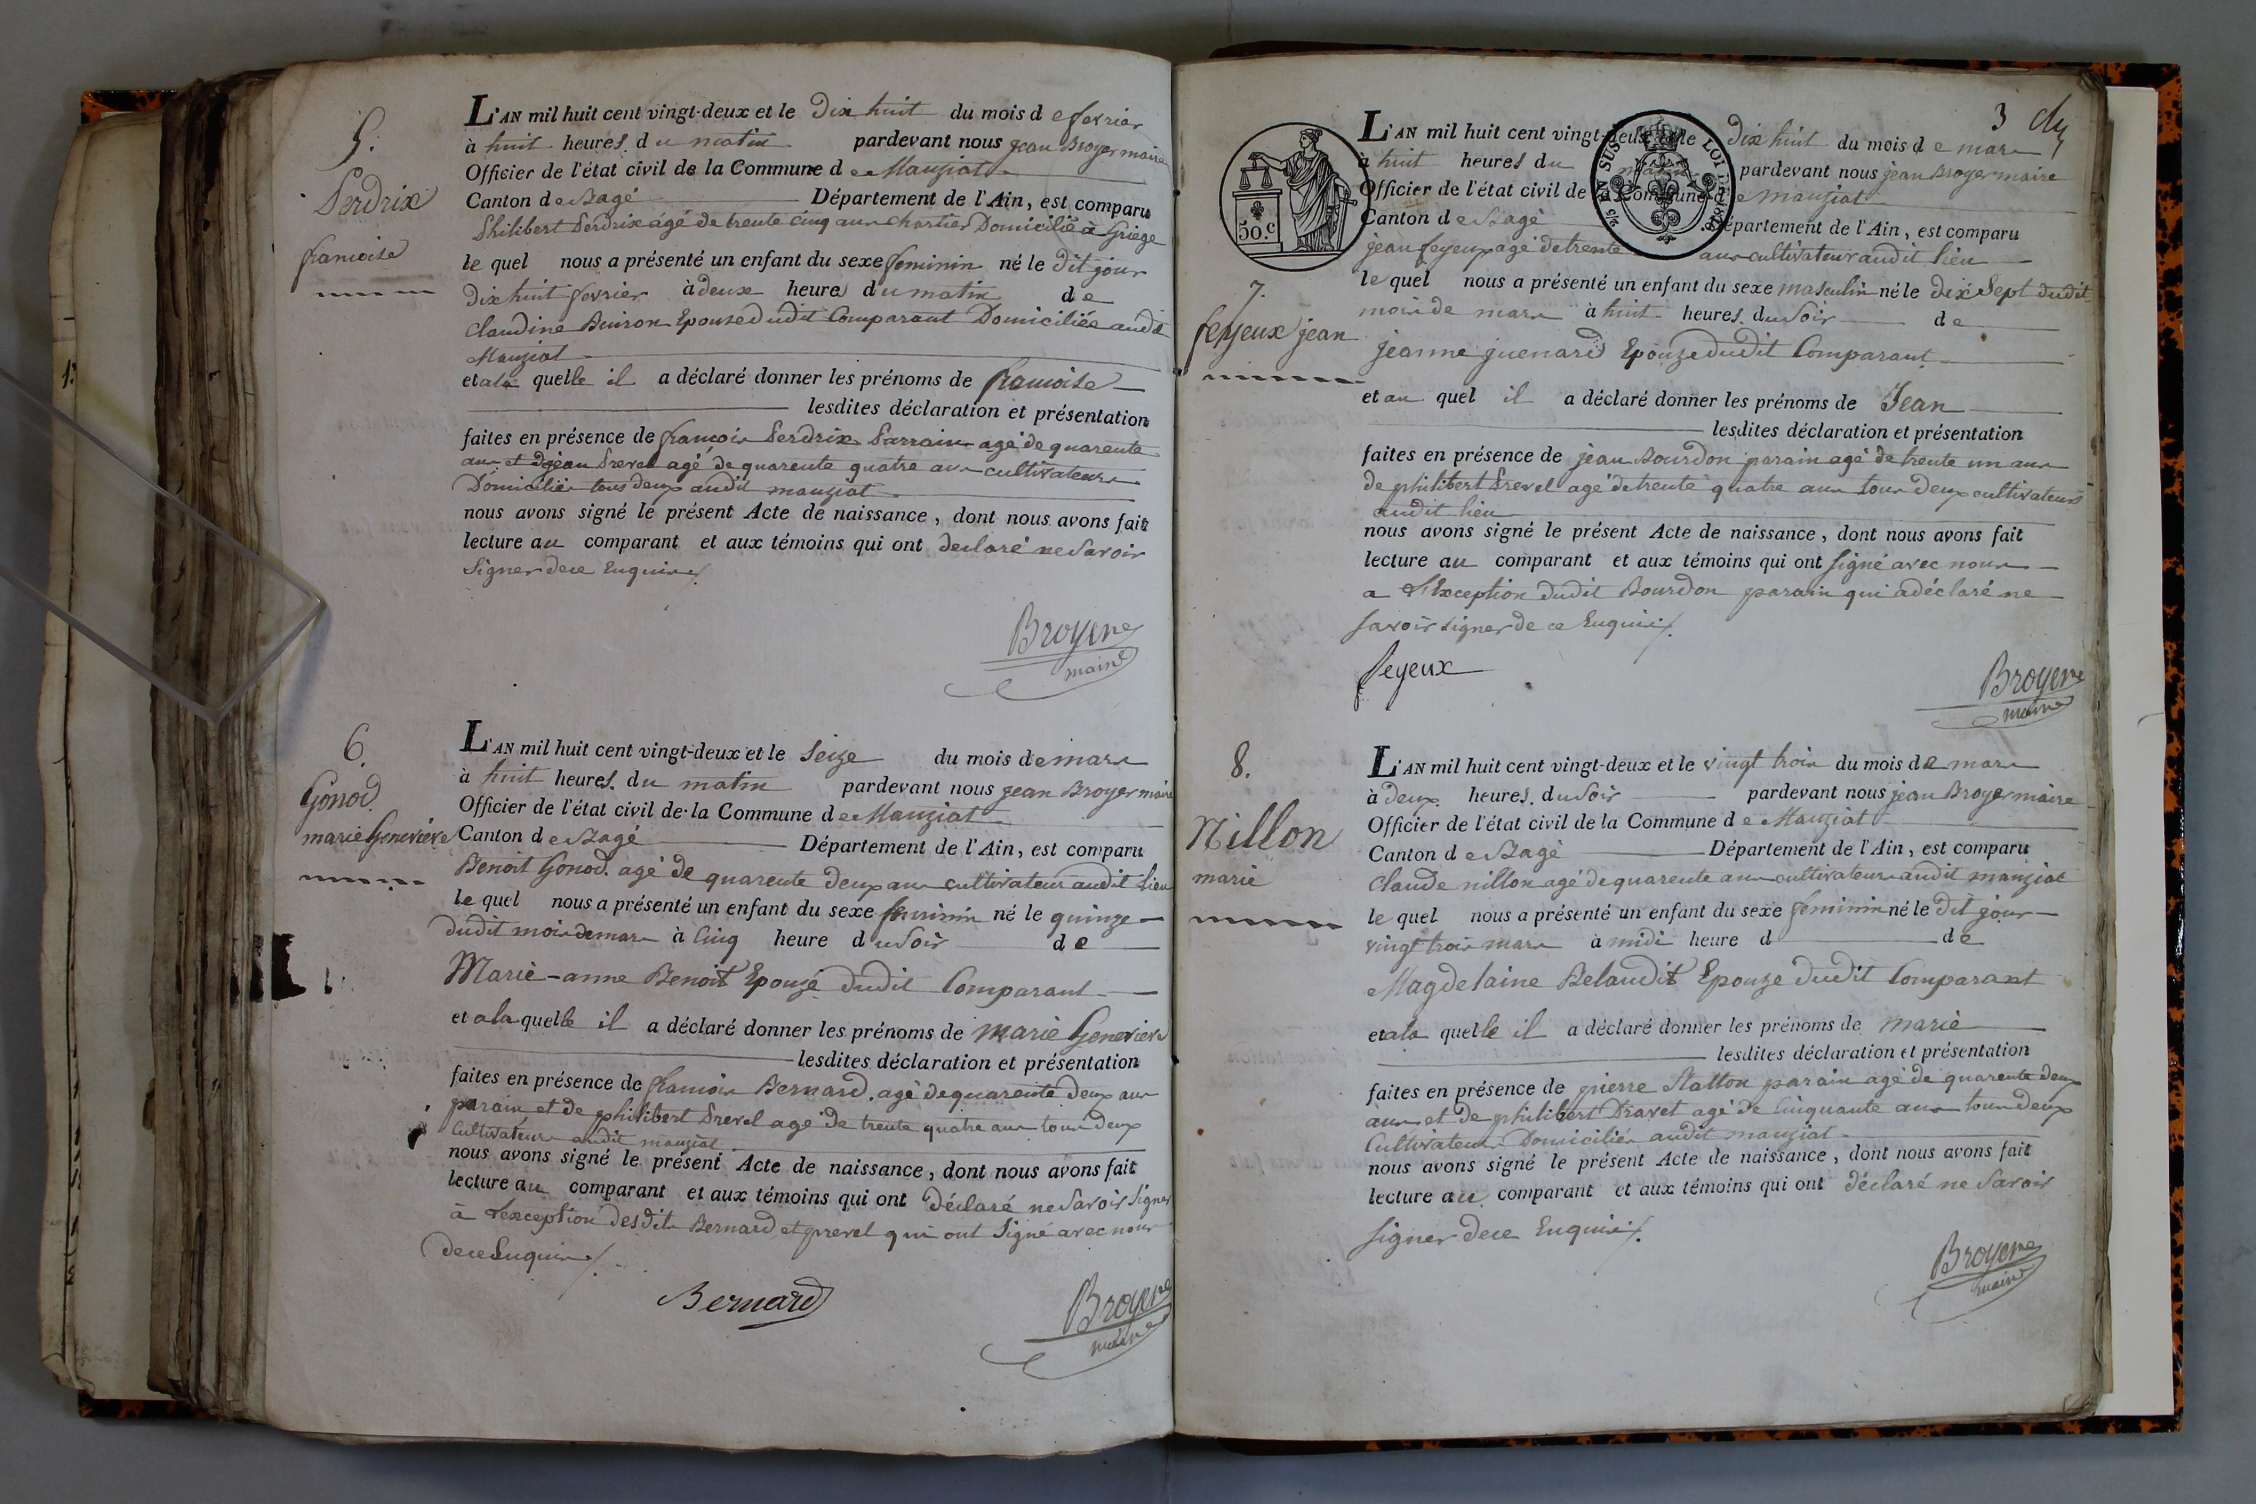 5.
Perdrix
francoise
L'AN mil huit cent vingt-deux et le Dix huit du mois d e fevrier
à huit heures. d u matin pardevant nous jean Broyer maire
Officier de l'état civil de la Commune d e Manziat
Canton d e Bagé Département de l'Ain, est comparu
Philibert Perdrix agé de trente cinq ans chartier Domicilié à Griege
le quel nous a présenté un enfant du sexe feminin né le dit jour
Dix huit fevrier à deux heures d u matin d e
Claudine Buiron Epouse dudit Comparant Domiciliée audit
Manziat
et a la quelle il a déclaré donner les prénoms de francoise
lesdites déclaration et présentation
faites en présence de francois Perdrix Parrain agé de quarente
ans et de jean Prevel agé de quarente quatre ans cultivateurs
Domiciliés tous deux audit manziat
nous avons signé le présent Acte de naissance, dont nous avons fait
lecture au comparant et aux témoins qui ont declaré ne Savoir
Signer de ce Enquis
Broyer
maire
6.
Gonod.
marie Genevieve
L'AN mil huit cent vingt-deux et le Seize du mois d e mars
à huit heures. d u matin pardevant nous jean Broyer maire
Officier de l'état civil de la Commune d e Manziat
Canton d e Bagé Département de l'Ain, est comparu
Benoit Gonod. agé de quarente deux ans cultivateur audit Lieu
le quel nous a présenté un enfant du sexe feminin né le quinze
dudit mois de mars à Cinq heure d u Soir d e
Marie-anne Benoit Epouse dudit Comparant
et a la quelle il a déclaré donner les prénoms de marie Genevieve
lesdites déclaration et présentation
faites en présence de francois Bernard. agé de quarente Deux ans
parain et de philibert Prevel agé de trente quatre ans tous Deux
Cultivateurs audit manziat
nous avons signé le présent Acte de naissance, dont nous avons fait
lecture au comparant et aux témoins qui ont déclaré ne Savoir Signer
à L'exception desdits Bernard et prevel qui ont Signé avec nous
de ce Enquis
Bernard
Broyer
maire
3
50.c
EN SUS LOI
7.
feyeux jean
L'AN mil huit cent vingt-deux et le Dix huit du mois d e mars
à huit heures du matin pardevant nous jean Broyer maire
Officier de l'état civil de la Commune d e manziat
Canton d e Bagé Département de l'Ain, est comparu
jean feyeux agé de trente ans cultivateur audit lieu
le quel nous a présenté un enfant du sexe masculin né le dix Sept dudit
mois de mars à huit heures. du Soir d e
jeanne guenard Epouze dudit Comparant
et au quel il a déclaré donner les prénoms de Jean
lesdites déclaration et présentation
faites en présence de jean Bourdon parain agé de trente un ans
de philibert Prevel agé de trente quatre ans tous Deux cultivateurs
audit lieu
nous avons signé le présent Acte de naissance, dont nous avons fait
lecture au comparant et aux témoins qui ont Signé avec nous
a L'Exception dudit Bourdon parain qui a déclaré ne
Savoir signer de ce Enquis
feyeux
Broyer
maire
8.
Nillon
marie
L'AN mil huit cent vingt-deux et le vingt trois du mois d e mars
à deux heures. du Soir pardevant nous jean Broyer maire
Officier de l'état civil de la Commune d e Manziat
Canton d e Bagé Département de l'Ain, est comparu
Claude nillon agé de quarente ans cultivateur audit manziat
le quel nous a présenté un enfant du sexe feminin né le Dit jour
vingt trois mars à midi heure d d e
Magdelaine Belaudit Epouze dudit Comparant
et a la quelle il a déclaré donner les prénoms de marie
lesdites déclaration et présentation
faites en présence de pierre parain agé de quarente deux
ans et de philibert Dravet agé de Cinquante ans tous Deux
Cultivateurs Domiciliés audit manziat
nous avons signé le présent Acte de naissance, dont nous avons fait
lecture au comparant et aux témoins qui ont déclaré ne Savoir
Signer de ce Enquis
Broyer
maire